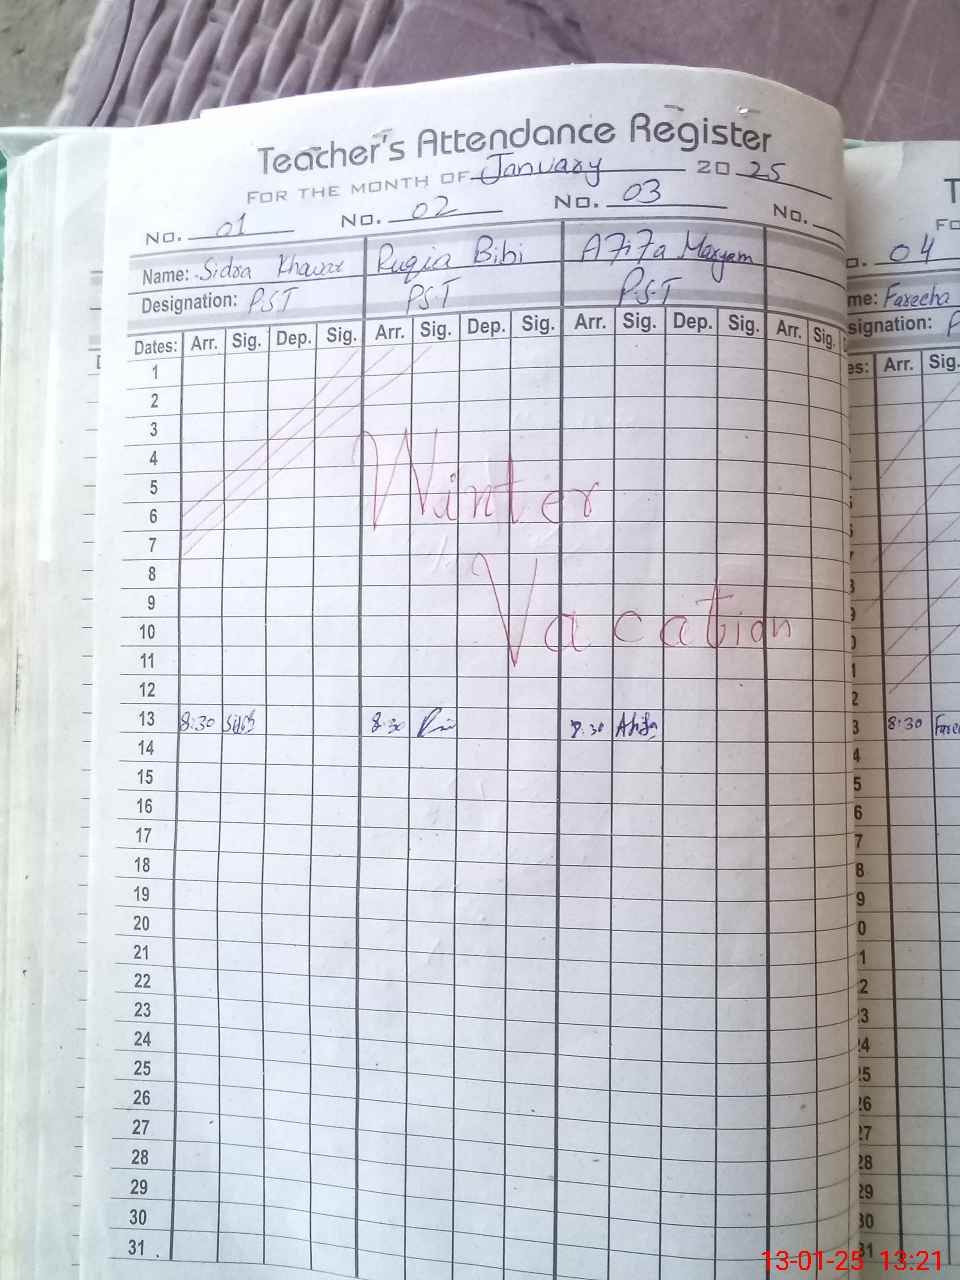 Teacher's Attendance Register
FOR THE MONTH OF January 2025
No. 01 No. 02 No. 03 No.
Name: Sidra Khawar Ruqia Bibi Afifa Maryam
Designation: PST PST PST
Dates: Arr. Sig. Dep. Sig. Arr. Sig. Dep. Sig. Arr. Sig. Dep. Sig. Arr. Sig.
1
2
3
4
5
6
7
8
9
10
11
12
13 8:30 8:30 8:30 Afifa
14
15
16
17
18
19
20
21
22
23
24
25
26
27
28
29
30
31
Winter
Vacation
04
me: Fareeha
signation:
es: Arr. Sig.
8:30
13-01-25 13:21